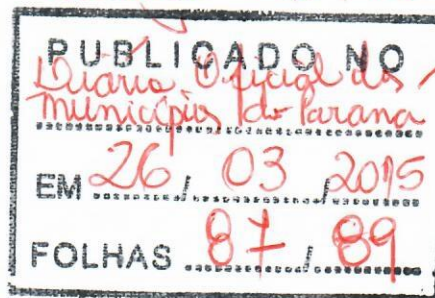 PUBLICADO NO
Diário Oficial dos
Municípios do Paraná
EM 26 / 03 / 2015
FOLHAS 87 / 89